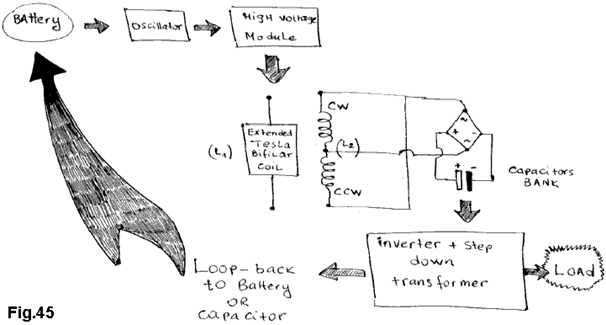 BAttery
OSCillAtoR
HIGH VOltage
Module
Extended
Tesla
Bifilar
COIL
(L1)
CW
(L2)
CCW
~
+ -
~
+ -
CAPACITORS
BANK
inverter + Step
down
transformer
LOAD
LOOP-back
to BAttery
OR
CAPACITOR
Fig.45